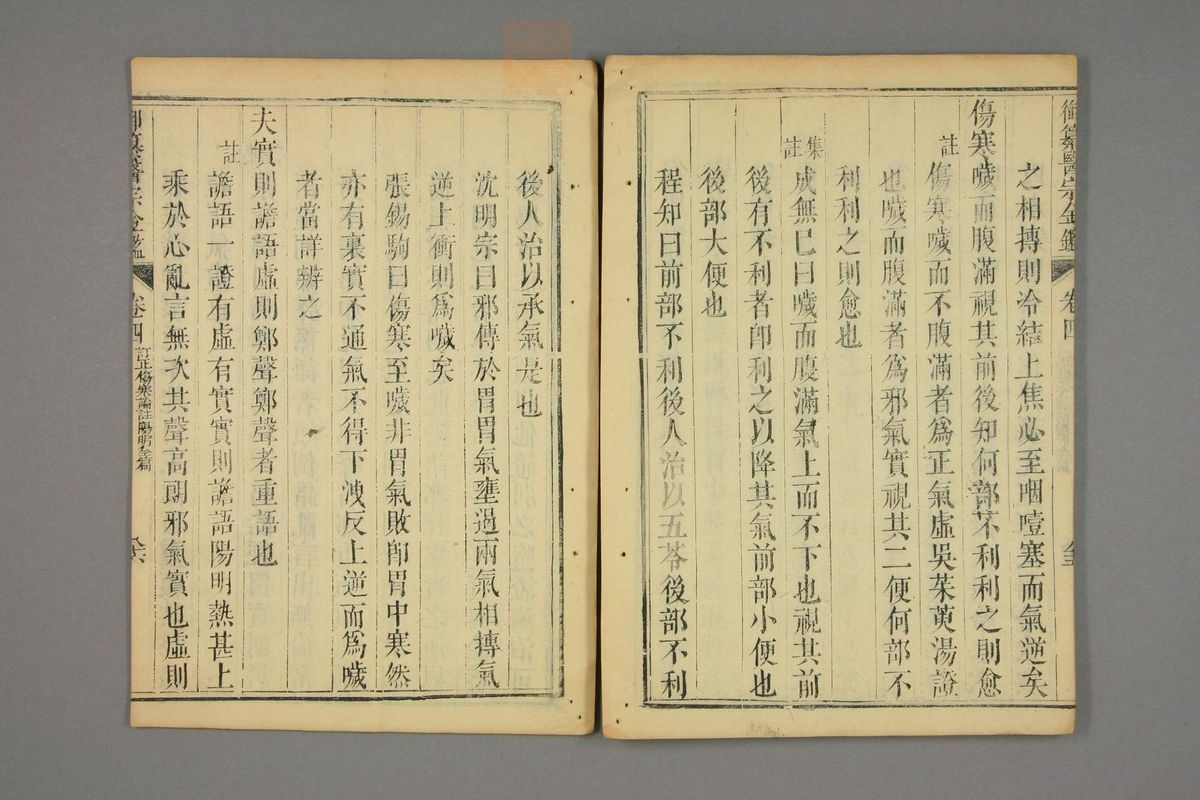 御纂醫宗金鑑 卷四
之相摶則冷結上焦必至咽噎塞而氣逆矣
傷寒噦而腹滿視其前後知何部不利利之則愈
註 傷寒噦而不腹滿者爲正氣虛吳茱萸湯證
也噦而腹滿者爲邪氣實視其二便何部不
利利之則愈也
集註 成無已曰噦而腹滿氣上而不下也視其前
後有不利者卽利之以降其氣前部小便也
後部大便也
程知曰前部不利後人治以五苓後部不利
後人治以承氣是也
沈明宗曰邪傳於胃胃氣壅過兩氣相摶氣
逆上衝則爲噦矣
張錫駒曰傷寒至噦非胃氣敗卽胃中寒然
亦有裏實不通氣不得下洩反上逆而爲噦
者當詳辨之
夫實則譫語虛則鄭聲鄭聲者重語也
註 譫語一證有虛有實實則譫語陽明熱甚上
乘於心亂言無次其聲高朗邪氣實也虛則
御纂醫宗金鑑 卷四 訂正傷寒論註陽明全篇